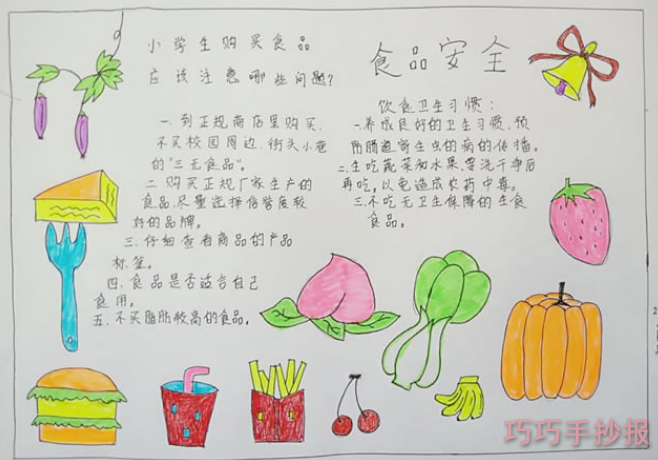 小学生购买食品
应该注意哪些问题?
一.到正规商店里购买,
不买校园周边、街头小巷
的"三无食品"。
二购买正规厂家生产的
食品.尽量选择信誉度较
好的品牌。
三.仔细查看商品的产品
标签。
四.食品是否适合自己
食用。
五.不买脂肪较高的食品。
食品安全
饮食卫生习惯:
一.养成良好的卫生习惯、预
防肠道寄生虫的病的传播。
二.生吃蔬菜和水果、要洗干净后
再吃,以免造成农药中毒。
三.不吃无卫生保障的生食
食品。
巧巧手抄报